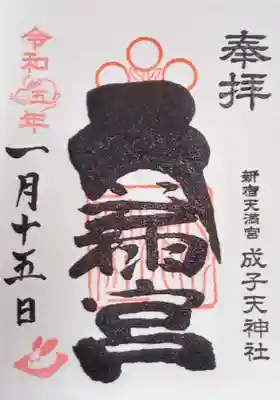 奉拝
新宿天満宮 成子天神社
宮
令和五年
一月十五日